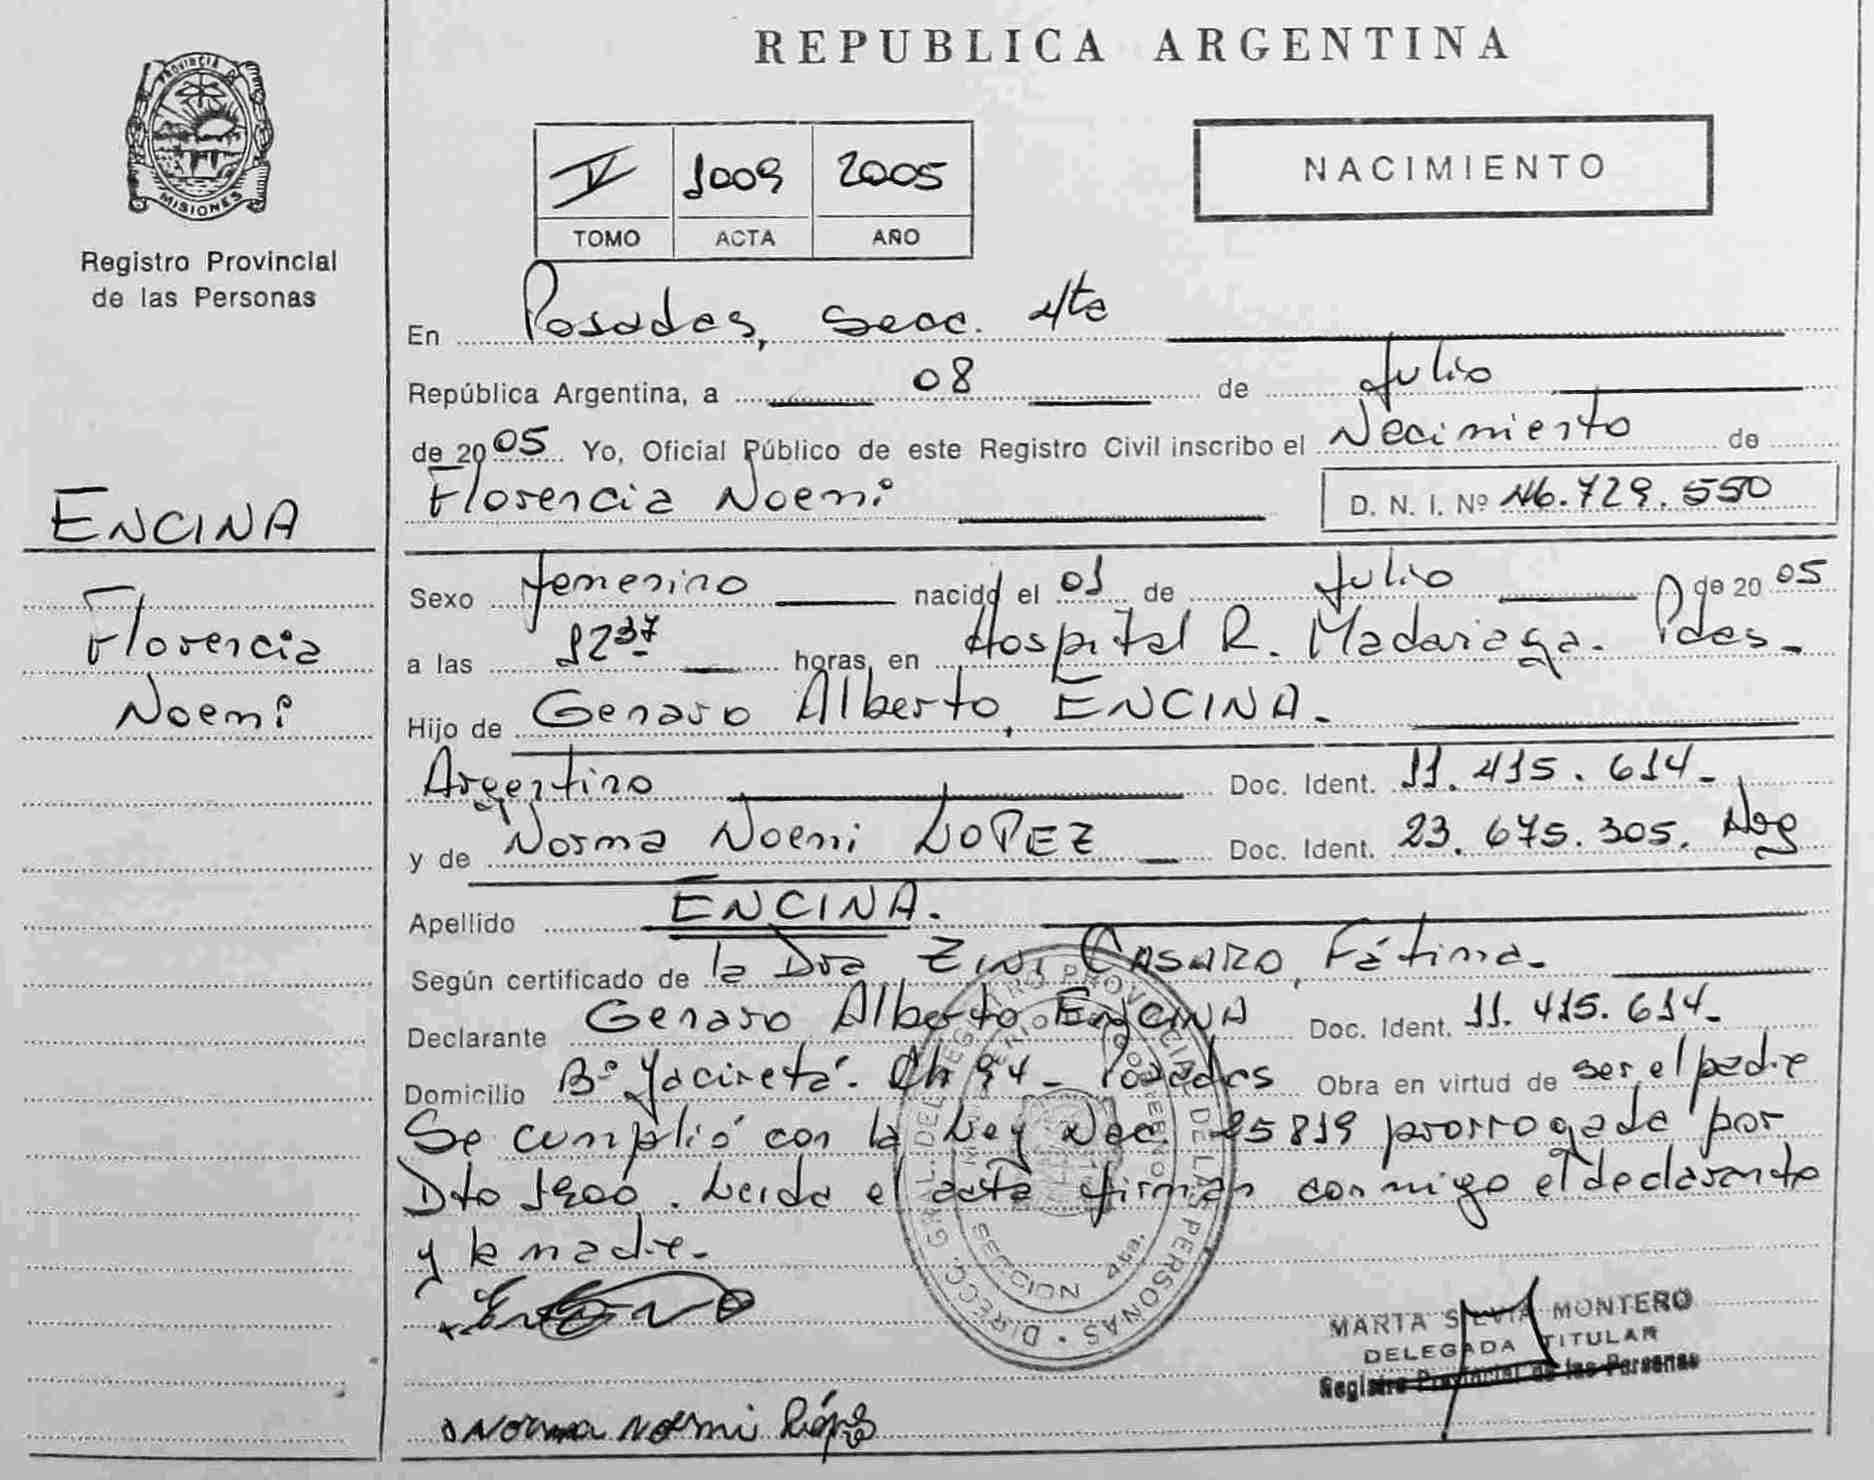 REPUBLICA ARGENTINA
PROVINCIA DE
MISIONES
Registro Provincial
de las Personas
IV 1009 2005
TOMO ACTA AÑO
NACIMIENTO
En Posadas, Secc. 4ta
República Argentina, a 08 de Julio
de 2005 Yo, Oficial Público de este Registro Civil inscribo el Nacimiento de
Florencia Noemi D. N. I. Nº 46.729.550
ENCINA
Florencia
Noemi
Sexo femenino nacido el 01 de Julio de 2005
a las 1237 horas, en Hospital R. Madariaga. Pdas-
Hijo de Genaro Alberto, ENCINA.
Argentino Doc. Ident. 11.415.614-
y de Norma Noemi LOPEZ Doc. Ident. 23.675.305. Arg
Apellido ENCINA.
Según certificado de la Dra Zini Casaro, Fátima-
Declarante Genaro Alberto ENCINA Doc. Ident. 11.415.614-
Domicilio Bº Yaciretá. Ch 94- Posadas Obra en virtud de ser el padre
Se cumplió con la Ley Nac. 25819 prorrogada por
Dto 1900. Leida el acta firman conmigo el declarante
y la madre-
DIRECC. GRAL. DEL REGISTRO PROVINCIAL DE LAS PERSONAS
SECCION 4ta.
MARTA SILVIA MONTERO
DELEGADA TITULAR
Registro Provincial de las Personas
Norma Noemi López